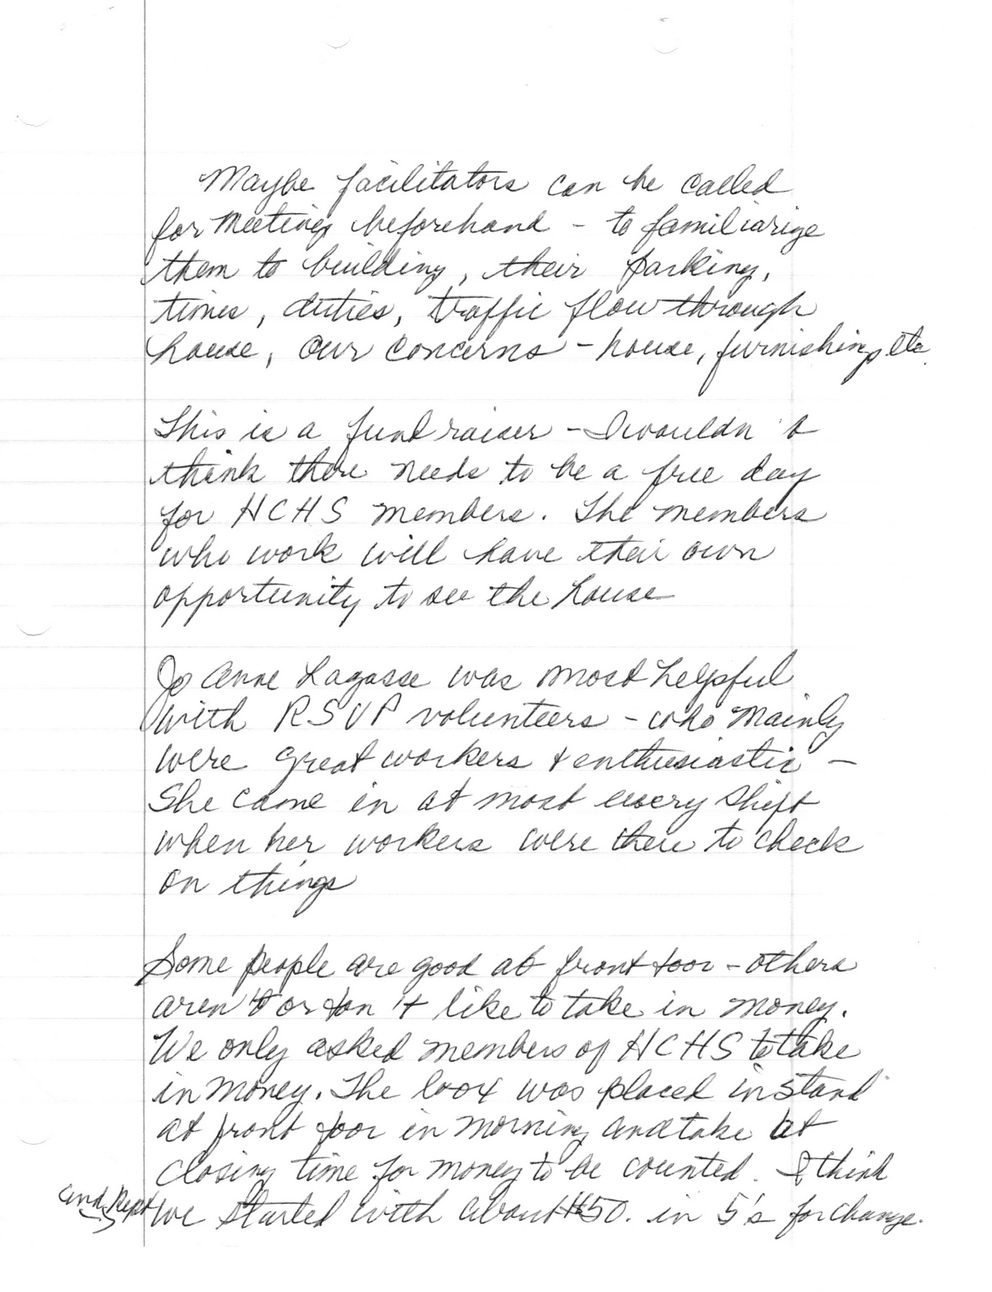 Maybe facilitators can be called
for meetings beforehand - to familiarize
them to building, their parking,
times, duties, traffic flow through
house, our concerns - house, furnishings etc.
This is a fund raiser - I wouldn't
think there needs to be a free day
for HCHS members. The members
who work will have their own
opportunity to see the house
Jo Anne Lagasse was most helpful
with RSVP volunteers - who mainly
were great workers + enthusiastic -
She came in at most every shift
when her workers were there to check
on things
Some people are good at front door - others
aren't or don't like to take in money.
We only asked members of HCHS to take
in money. The box was placed in stand
at front door in morning and take at
closing time for money to be counted. I think
and kept we started with about $50. in 5's for change.